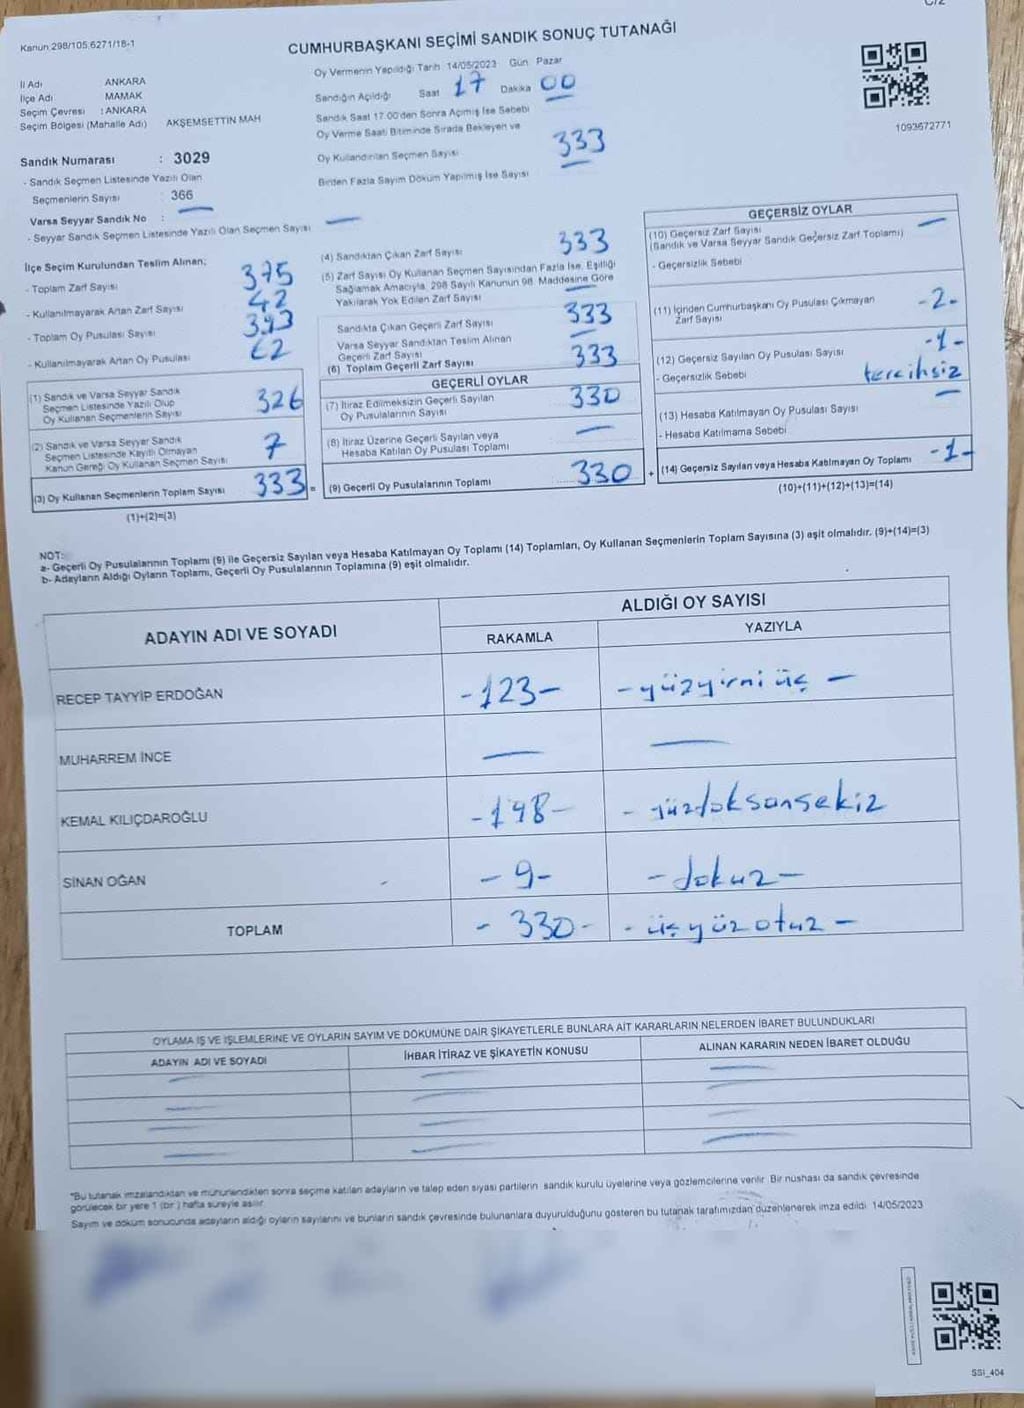 C/2
Kanun 298/105.6271/18-1
CUMHURBAŞKANI SEÇİMİ SANDIK SONUÇ TUTANAĞI
Oy Vermenin Yapıldığı Tarih 14/05/2023 Gün Pazar
İl Adı ANKARA
İlçe Adı MAMAK
Seçim Çevresi : ANKARA
Seçim Bölgesi (Mahalle Adı) AKŞEMSETTİN MAH
Sandığın Açıldığı Saat 17 Dakika 00
Sandık Saat 17.00'den Sonra Açımış İse Sebebi
Oy Verme Saati Bitiminde Sırada Bekleyen ve
Oy Kullandırılan Seçmen Sayısı 333
Birden Fazla Sayım Döküm Yapılmış İse Sayısı
1093672771
Sandık Numarası : 3029
- Sandık Seçmen Listesinde Yazılı Olan
Seçmenlerin Sayısı : 366
Varsa Seyyar Sandık No :
- Seyyar Sandık Seçmen Listesinde Yazılı Olan Seçmen Sayısı
İlçe Seçim Kurulundan Teslim Alınan;
- Toplam Zarf Sayısı 375
- Kullanılmayarak Artan Zarf Sayısı 42
- Toplam Oy Pusulası Sayısı 393
- Kullanılmayarak Artan Oy Pusulası
(1) Sandık ve Varsa Seyyar Sandık
Seçmen Listesinde Yazılı Olup
Oy Kullanan Seçmenlerin Sayısı 326
(2) Sandık ve Varsa Seyyar Sandık
Seçmen Listesinde Kayıtlı Olmayan
Kanun Gereği Oy Kullanan Seçmen Sayısı 7
(3) Oy Kullanan Seçmenlerin Toplam Sayısı 333 =
(1)+(2)=(3)
(4) Sandıktan Çıkan Zarf Sayısı 333
(5) Zarf Sayısı Oy Kullanan Seçmen Sayısından Fazla İse, Eşitliği
Sağlamak Amacıyla, 298 Sayılı Kanunun 98. Maddesine Göre
Yakılarak Yok Edilen Zarf Sayısı
Sandıkta Çıkan Geçerli Zarf Sayısı 333
Varsa Seyyar Sandıktan Teslim Alınan
Geçerli Zarf Sayısı
(6) Toplam Geçerli Zarf Sayısı 333
GEÇERLİ OYLAR
(7) İtiraz Edilmeksizin Geçerli Sayılan
Oy Pusulalarının Sayısı 330
(8) İtiraz Üzerine Geçerli Sayılan veya
Hesaba Katılan Oy Pusulası Toplamı
(9) Geçerli Oy Pusulalarının Toplamı 330 +
GEÇERSİZ OYLAR
(10) Geçersiz Zarf Sayısı
(Sandık ve Varsa Seyyar Sandık Geçersiz Zarf Toplamı)
- Geçersizlik Sebebi
(11) İçinden Cumhurbaşkanı Oy Pusulası Çıkmayan
Zarf Sayısı -2-
(12) Geçersiz Sayılan Oy Pusulası Sayısı -1-
- Geçersizlik Sebebi tercihsiz
(13) Hesaba Katılmayan Oy Pusulası Sayısı
- Hesaba Katılmama Sebebi
(14) Geçersiz Sayılan veya Hesaba Katılmayan Oy Toplamı -1-
(10)+(11)+(12)+(13)=(14)
NOT:
a- Geçerli Oy Pusulalarının Toplamı (9) ile Geçersiz Sayılan veya Hesaba Katılmayan Oy Toplamı (14) Toplamları, Oy Kullanan Seçmenlerin Toplam Sayısına (3) eşit olmalıdır. (9)+(14)=(3)
b- Adayların Aldığı Oyların Toplamı, Geçerli Oy Pusulalarının Toplamına (9) eşit olmalıdır.
ADAYIN ADI VE SOYADI ALDIĞI OY SAYISI
RAKAMLA YAZIYLA
RECEP TAYYİP ERDOĞAN -123- -yüzyirmi üç -
MUHARREM İNCE
KEMAL KILIÇDAROĞLU -198- - yüzdoksansekiz
SİNAN OĞAN -9- -dokuz-
TOPLAM - 330- - üçyüz otuz -
OYLAMA İŞ VE İŞLEMLERİNE VE OYLARIN SAYIM VE DÖKÜMÜNE DAİR ŞİKAYETLERLE BUNLARA AİT KARARLARIN NELERDEN İBARET BULUNDUKLARI
ADAYIN ADI VE SOYADI İHBAR İTİRAZ VE ŞİKAYETİN KONUSU ALINAN KARARIN NEDEN İBARET OLDUĞU
*Bu tutanak imzalandıktan ve mühürlendikten sonra seçime katılan adayların ve talep eden siyasi partilerin sandık kurulu üyelerine veya gözlemcilerine verilir. Bir nüshası da sandık çevresinde
görülecek bir yere 1 (bir) hafta süreyle asılır.
Sayım ve döküm sonucunda adayların aldığı oyların sayılarını ve bunların sandık çevresinde bulunanlara duyurulduğunu gösteren bu tutanak tarafımızdan düzenlenerek imza edildi. 14/05/2023
SSI_404